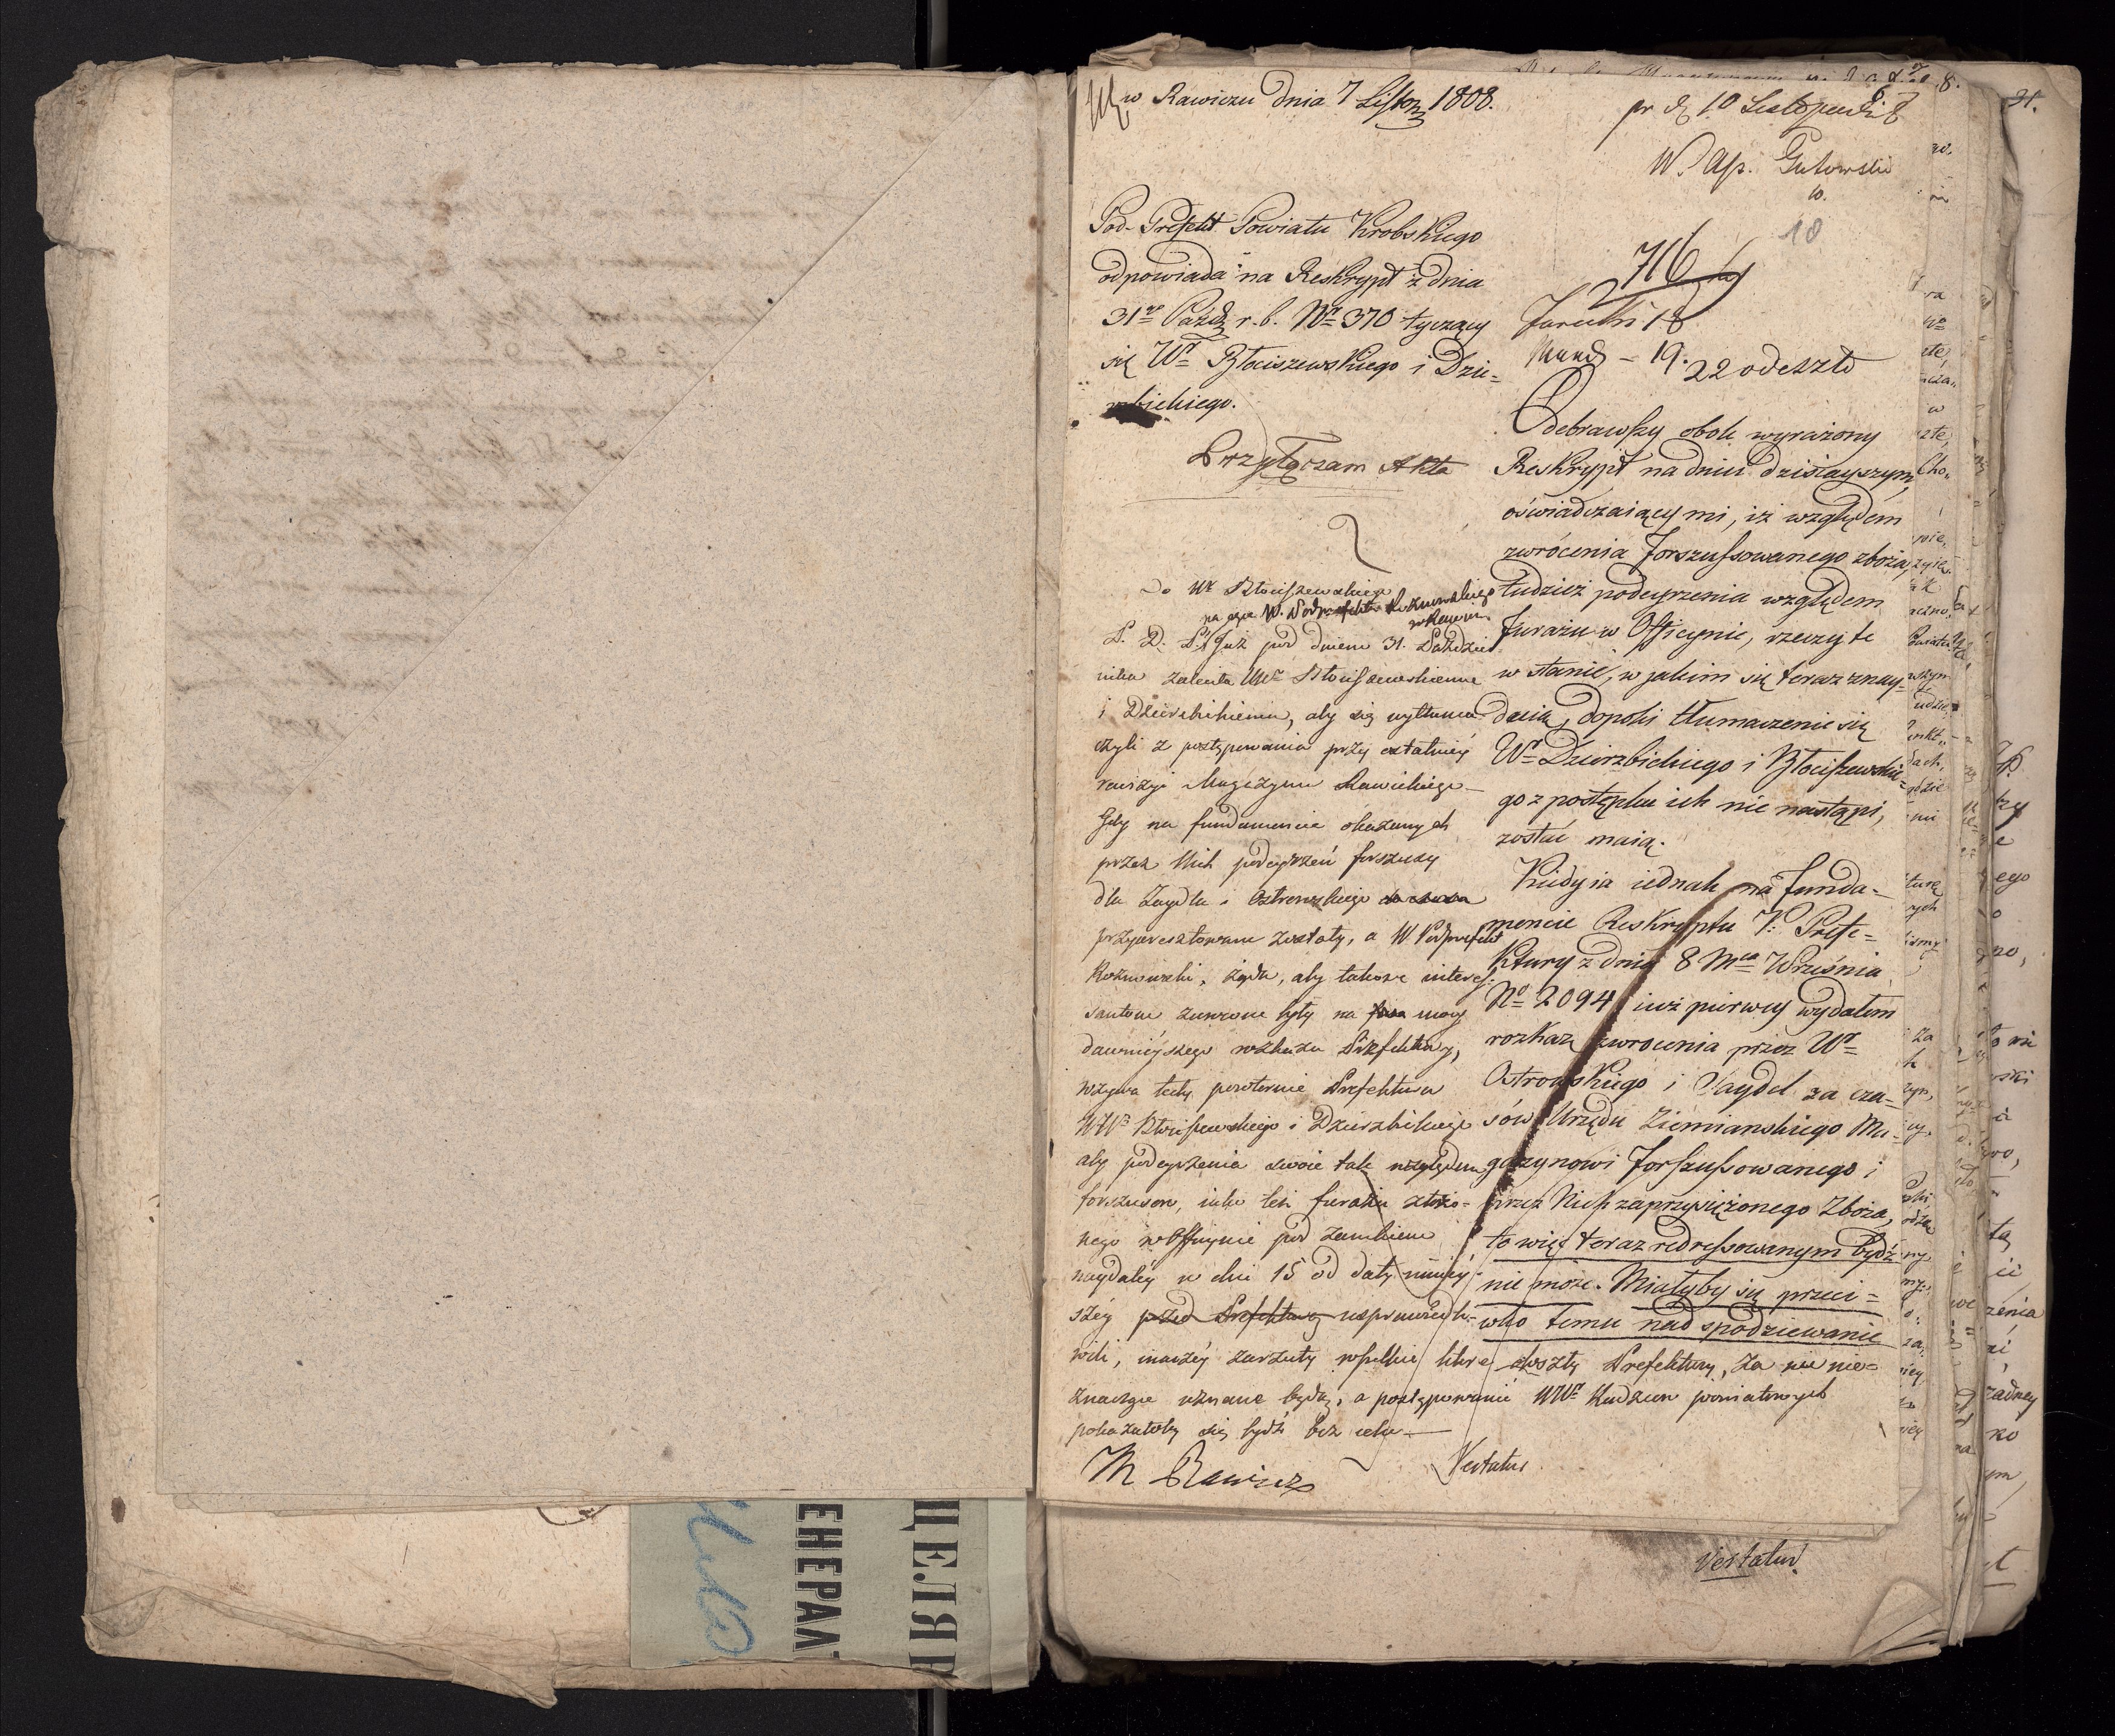 w Rawiczu dnia 7 Listop 1808.
pr d 10 Listopada 8
W. Ass. Gutowski
10.
18
Pod-Prefekt Powiatu Krobskiego
odpowiada na Reskrypt z dnia
31go Paźdz r. b. No 370 tyczący
się Wo Błociszewskiego i Dzie=
rzbickiego.
Przyłączam Akta
716
Jarucki 18
Mund – 19.
22 odeszło
Odebrawszy obok wyrażony
Reskrypt na dniu dzisiayszym,
oświadczaiący mi, iż względem
zwrócenia forszussowanego zboża,
tudzież podeyrzenia względem
furażu w Officynie, rzeczy te
w stanie, w jakim się teraz znay=
duią, dopoki tłumaczenie się
Wo Dzierzbickiego i Błociszewskie=
go z postępku ich nie nastąpi,
zostać maią.
Kiedy ia iednak na funda=
mencie Reskryptu P. Prefe=
ktury z dnia 8 Mca Września
No 2094 iuż pierwey wydałem
rozkaz zwrocenia przez Wo
Ostrowskiego i Zaydel za cza=
sów Urzędu Ziemianskiego Ma=
gazynowi forszussowanego i
przez Nich zaprzysiężonego Zboża,
to więc teraz redressowanym bydź
nie może. Miałyby się przeci=
wko temu nad spodziewanie
Do WW Błociszewskiego
na ręce W. Podprefekta Kozmowskiego
w Rawiczu
P. D. P. Już pod dniem 31. Paździer
nika zaleciła WWo Błociszewskiemu
i Dzierzbickiemu, aby się wytłuma
czyli z postępowania przy ostatniey
rewizyi Magazynu Rawickiego –
Gdy na fundamencie okazanych
przez Nich podeyrzeń forszusy
dla Zaydla i Ostrowskiego
przyaresztowane zostały, a W Podprefekt
żąda, aby takowe interes=
santom zwrocone były na mocy
dawnieyszego rozkazu Prefektury,
wzywa tedy powtornie Prefektura
WWo Błociszewskiego i Dzierzbickiego
aby podeyrzenia swoie tak względem
forszusow, iako też furażu złożo=
nego w Officynie pod zamkiem
naydaley w dni 15 od daty niniey=
szey przed Prefekturą usprawiedli=
wili, inaczey zarzuty wszelkie które doszły Prefektury, za nie=
znaczące uznane będą, a postępowanie WWo Radzców powiatowych
pokazałoby się bydź bez celu –
Vertatur
Vertatur
31.
8.
ЦЕЛЯР
ЕНЕРАЛ